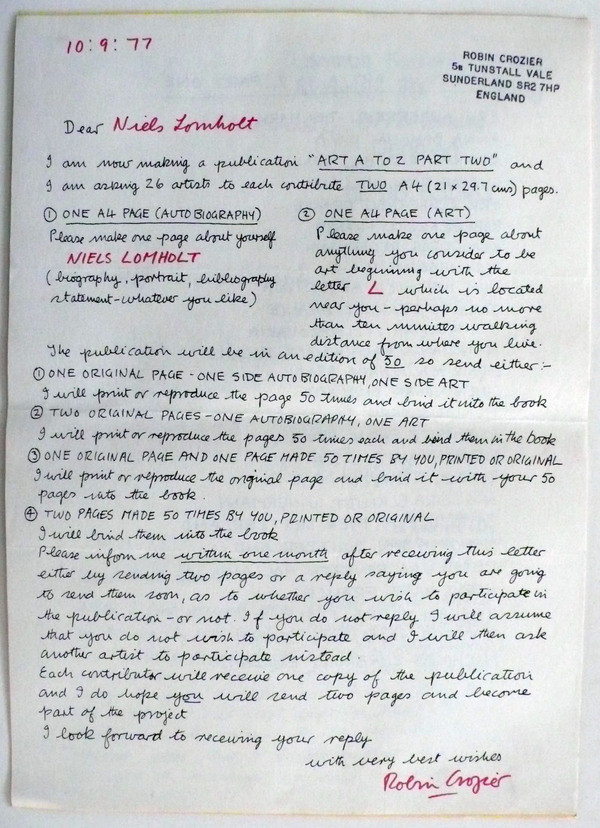 10:9:77
ROBIN CROZIER
5B TUNSTALL VALE
SUNDERLAND SR2 7HP
ENGLAND
Dear Niels Lomholt
I am now making a publication "ART A TO Z PART TWO" and
I am asking 26 artists to each contribute TWO A4 (21 x 29.7 cms) pages.
① ONE A4 PAGE (AUTOBIOGRAPHY)
Please make one page about yourself
NIELS LOMHOLT
(biography, portrait, bibliography
statement - whatever you like)
② ONE A4 PAGE (ART)
Please make one page about
anything you consider to be
art beginning with the
letter L which is located
near you - perhaps no more
than ten minutes walking
distance from where you live.
The publication will be in an edition of 50 so send either:-
① ONE ORIGINAL PAGE - ONE SIDE AUTOBIOGRAPHY, ONE SIDE ART
I will print or reproduce the page 50 times and bind it into the book
② TWO ORIGINAL PAGES - ONE AUTOBIOGRAPHY, ONE ART
I will print or reproduce the pages 50 times each and bind them in the book
③ ONE ORIGINAL PAGE AND ONE PAGE MADE 50 TIMES BY YOU, PRINTED OR ORIGINAL
I will print or reproduce the original page and bind it with your 50
pages into the book.
④ TWO PAGES MADE 50 TIMES BY YOU, PRINTED OR ORIGINAL
I will bind them into the book
Please inform me within one month after receiving this letter
either by sending two pages or a reply saying you are going
to send them soon, as to whether you wish to participate in
the publication - or not. If you do not reply I will assume
that you do not wish to participate and I will then ask
another artist to participate instead.
Each contributor will receive one copy of the publication
and I do hope you will send two pages and become
part of the project
I look forward to receiving your reply
with very best wishes
Robin Crozier